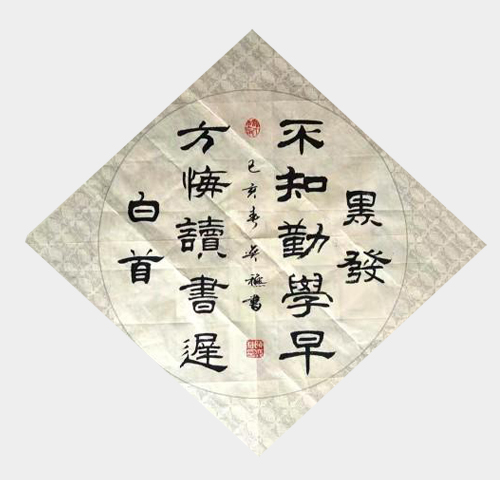 黑發
不知勤學早
己亥春吳樵書
方悔讀書遲
白首